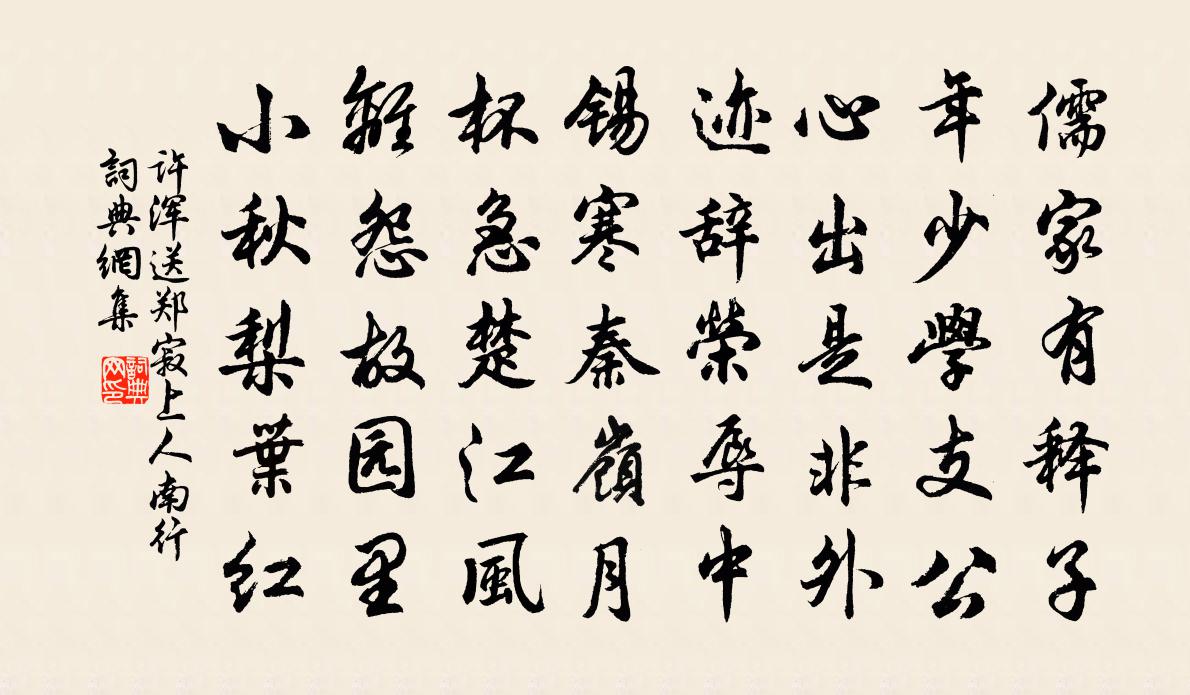 儒家有释子
年少學支公
心出是非外
迹辞榮辱中
锡寒秦嶺月
杯急楚江風
離怨故园里
小秋梨葉红
许浑送郑寂上人南行
詞典網集
詞典网印